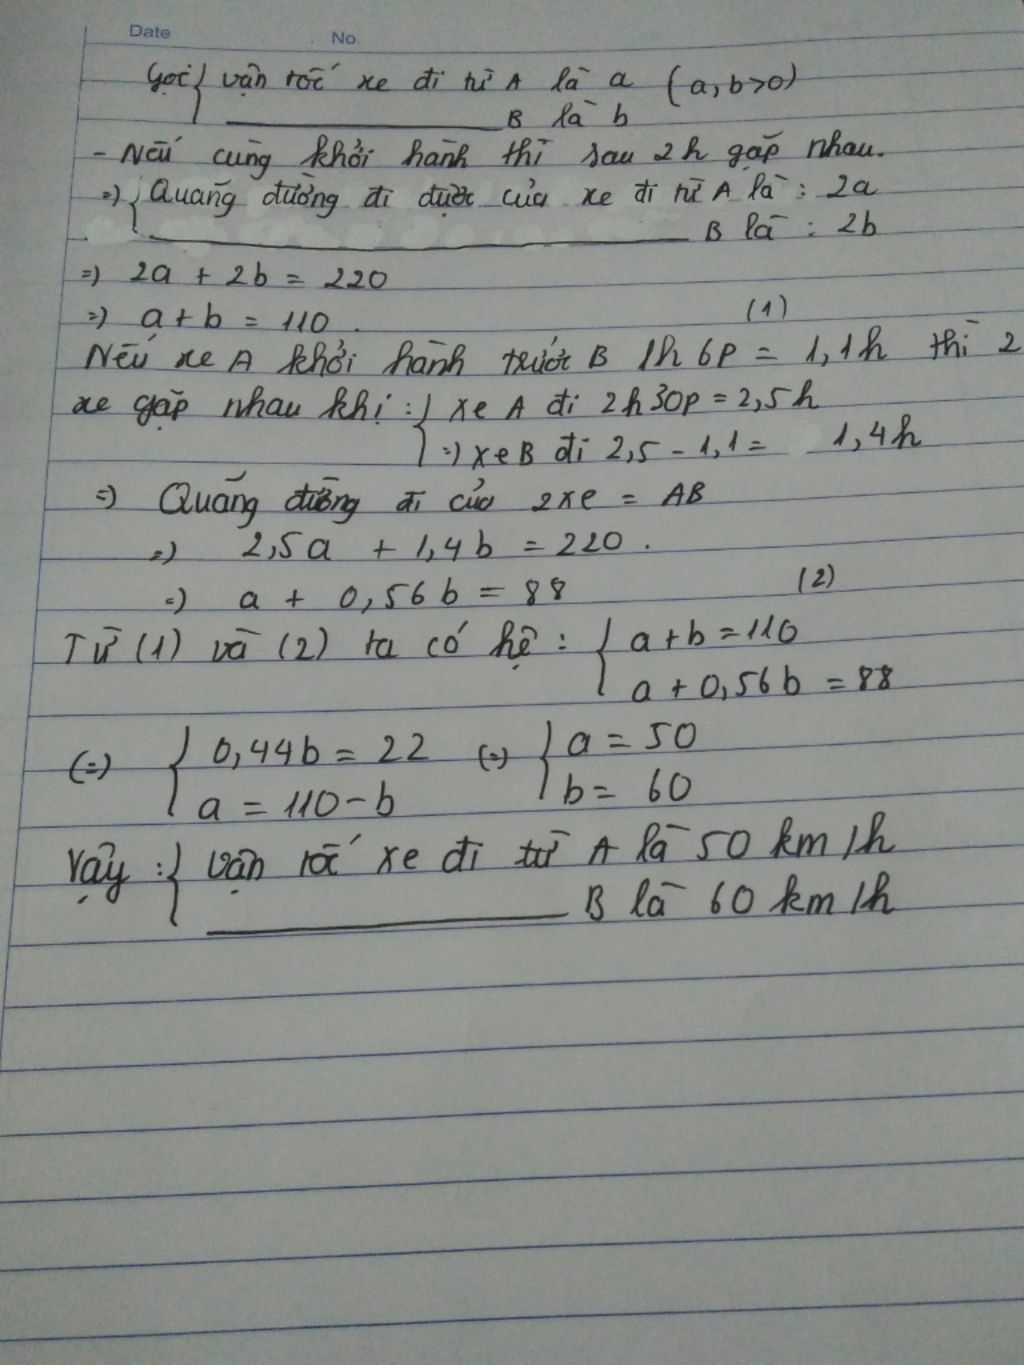 Date No.
Gọi { vận tốc xe đi từ A là a (a, b>0)
____________ B là b
- Nếu cùng khởi hành thì sau 2h gặp nhau.
=> { Quãng đường đi được của xe đi từ A là : 2a
____________ B là : 2b
=> 2a + 2b = 220
=> a + b = 110. (1)
Nếu xe A khởi hành trước B 1h 6p = 1,1h thì 2
xe gặp nhau khi : { xe A đi 2h30p = 2,5h
=> xe B đi 2,5 - 1,1 = 1,4h
=> Quãng đường đi của 2 xe = AB
=> 2,5a + 1,4b = 220.
=> a + 0,56b = 88 (2)
Từ (1) và (2) ta có hệ : { a + b = 110
a + 0,56b = 88
(=) { 0,44b = 22 (=) { a = 50
a = 110 - b b = 60
Vậy : { vận tốc xe đi từ A là 50 km/h
____________ B là 60 km/h